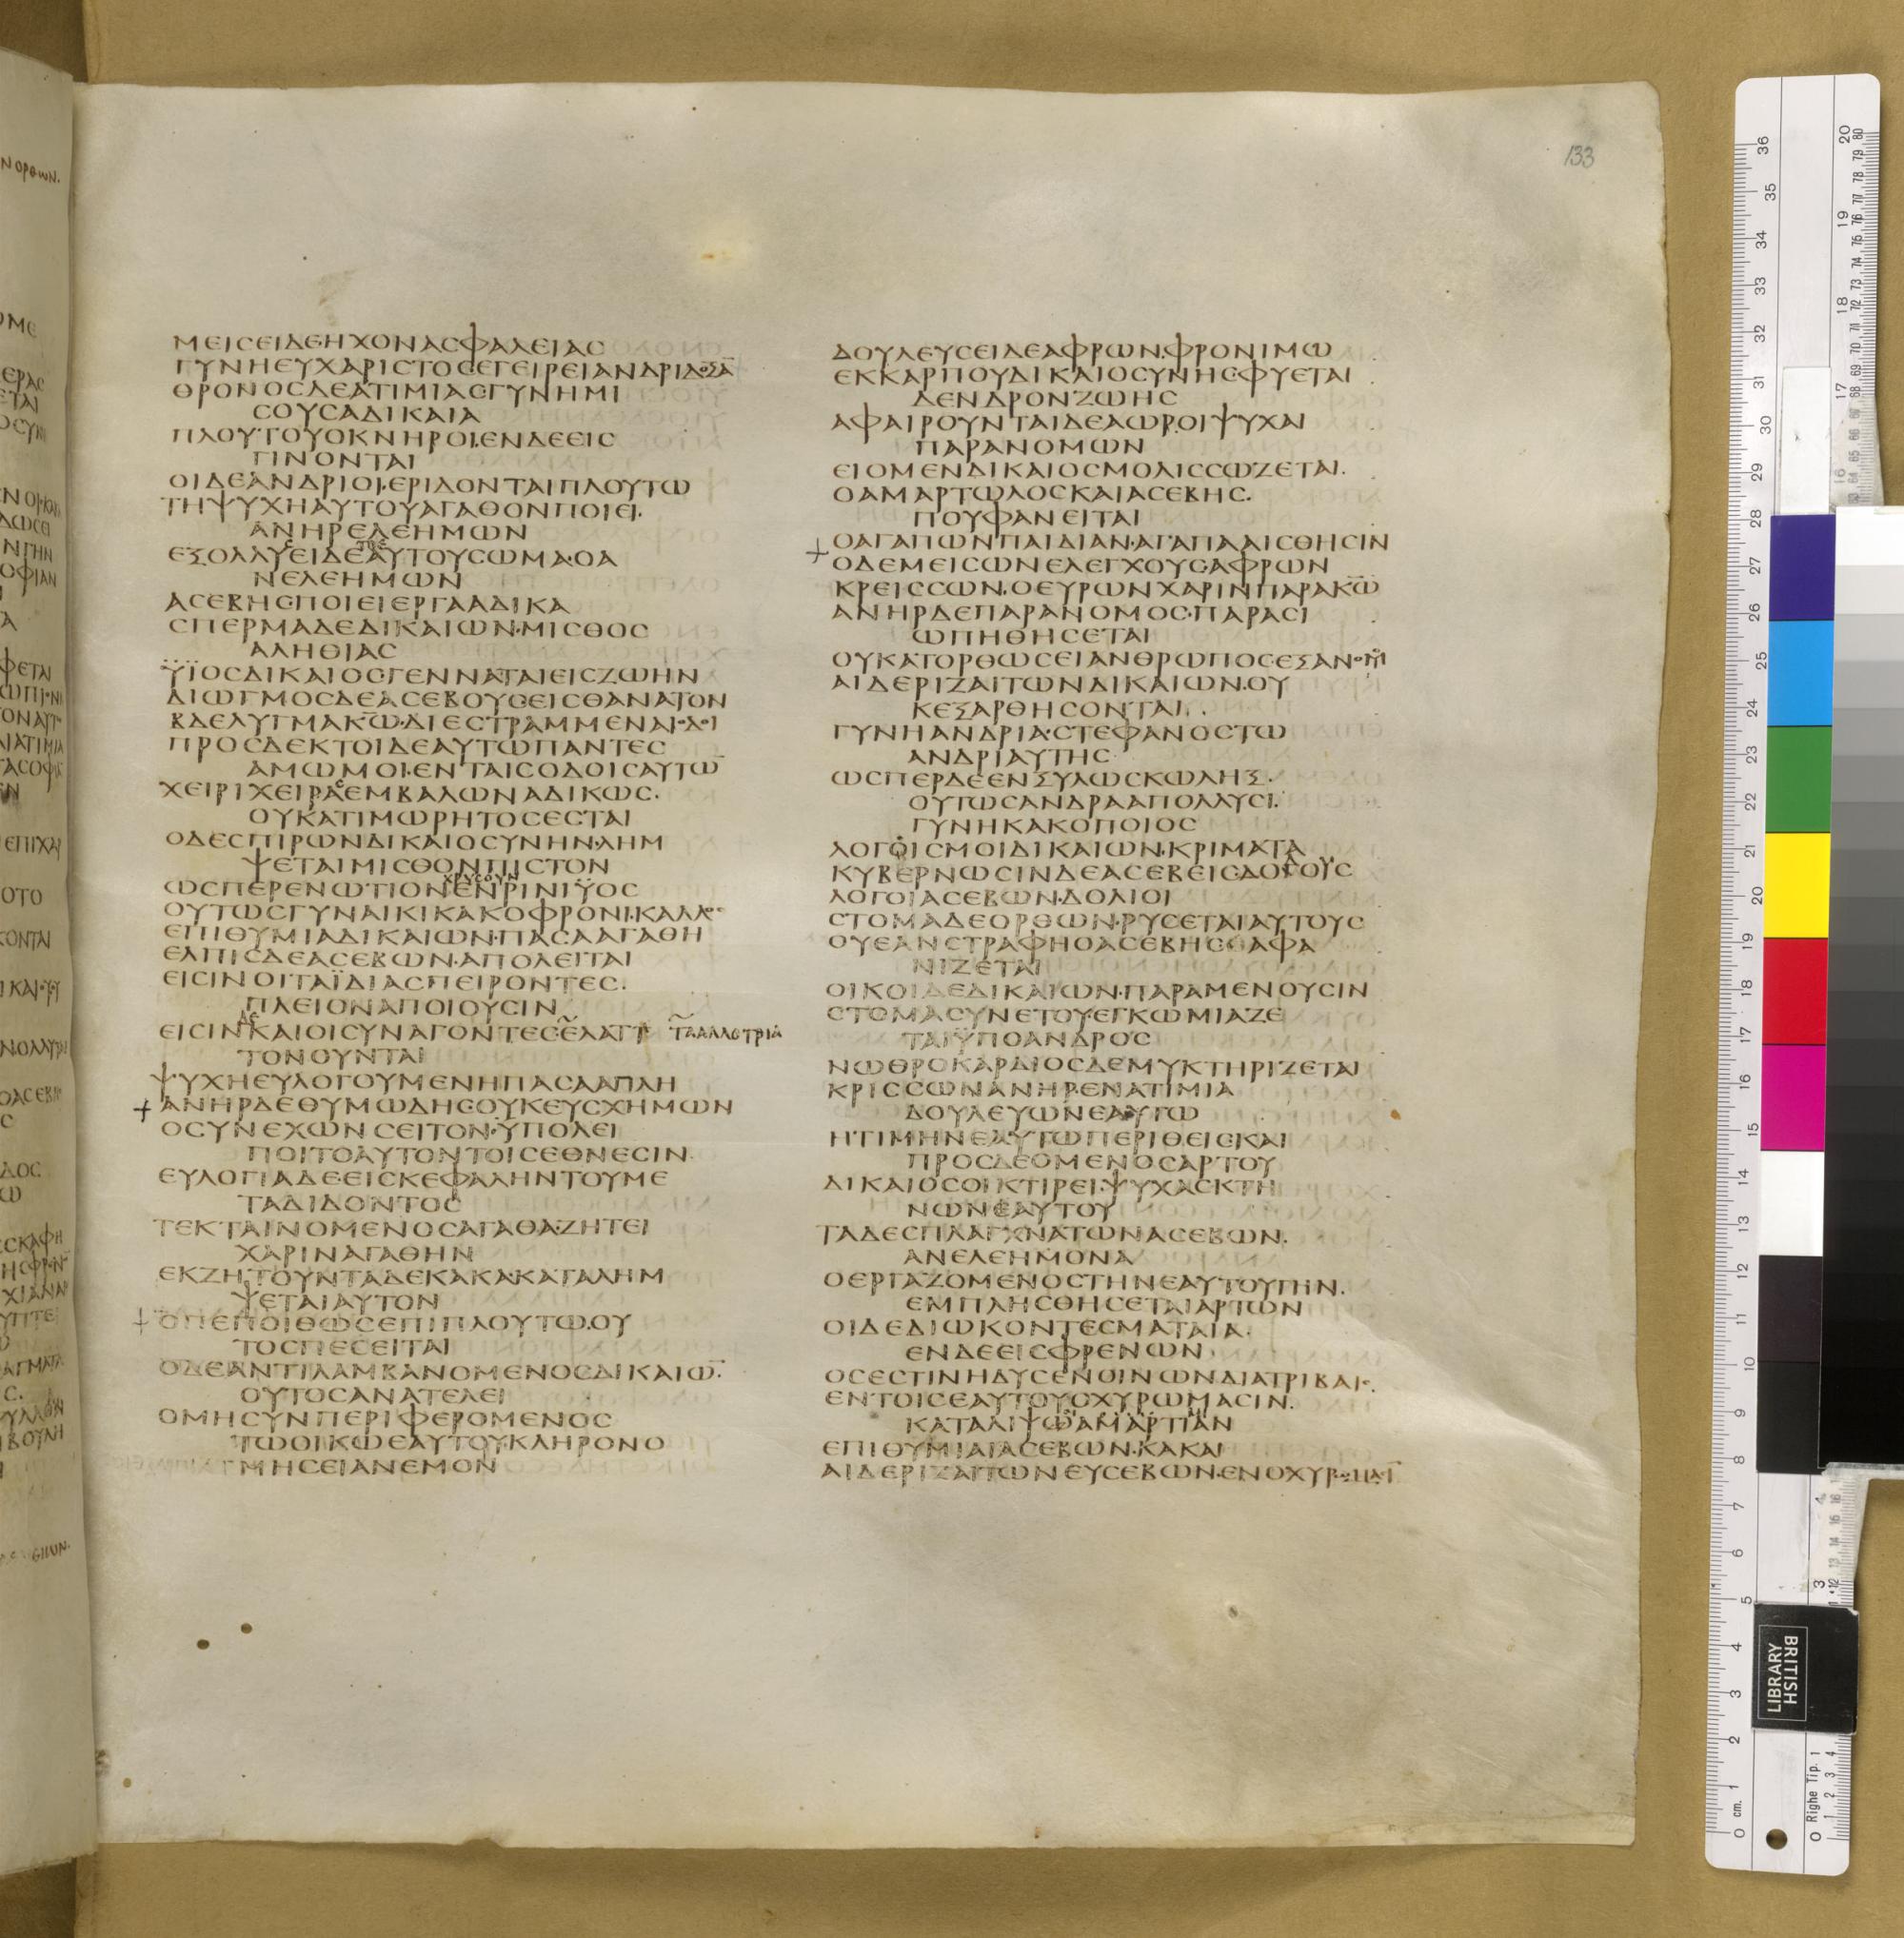 133
ΜΕΙϹΕΙΔΕΗΧΟΝΑϹΦΑΛΕΙΑϹ
ΓΥΝΗΕΥΧΑΡΙϹΤΟϹΕΓΕΙΡΕΙΑΝΔΡΙΔΟΞΑ̅
ΘΡΟΝΟϹΔΕΑΤΙΜΙΑϹΓΥΝΗΜΙ
ϹΟΥϹΑΔΙΚΑΙΑ
ΠΛΟΥΤΟΥΟΚΝΗΡΟΙ·ΕΝΔΕΕΙϹ
ΓΙΝΟΝΤΑΙ
ΟΙΔΕΑΝΔΡΙΟΙ·ΕΡΙΔΟΝΤΑΙΠΛΟΥΤΩ
ΤΗΨΥΧΗΑΥΤΟΥΑΓΑΘΟΝΠΟΙΕΙ·
ΑΝΗΡΕΛΕΗΜΩΝ
ΕΞΟΛΛΥΕΙΔΕΑΥΤΟΥϹΩΜΑ·ΟΑ
ΝΕΛΕΗΜΩΝ
ΑϹΕΒΗϹΠΟΙΕΙΕΡΓΑΑΔΙΚΑ
ϹΠΕΡΜΑΔΕΔΙΚΑΙΩΝ·ΜΙϹΘΟϹ
ΑΛΗΘΙΑϹ
ΫΪΟϹΔΙΚΑΙΟϹΓΕΝΝΑΤΑΙΕΙϹΖΩΗΝ
ΔΙΩΓΜΟϹΔΕΑϹΕΒΟΥϹΕΙϹΘΑΝΑΤΟΝ
ΒΔΕΛΥΓΜΑΚ̅Ω̅·ΔΙΕϹΤΡΑΜΜΕΝΑΙΟΔΟΙ
ΠΡΟϹΔΕΚΤΟΙΔΕΑΥΤΩΠΑΝΤΕϹ
ΑΜΩΜΟΙ·ΕΝΤΑΙϹΟΔΟΙϹΑΥΤΩ̅
ΧΕΙΡΙΧΕΙΡΑϹΕΜΒΑΛΩΝΑΔΙΚΩϹ·
ΟΥΚΑΤΙΜΩΡΗΤΟϹΕϹΤΑΙ
ΟΔΕϹΠΙΡΩΝΔΙΚΑΙΟϹΥΝΗΝ·ΛΗΜ
ΨΕΤΑΙΜΙϹΘΟΝΠΙϹΤΟΝ
ΧΡΥϹΟΥΝ
ΩϹΠΕΡΕΝΩΤΙΟΝΕΝΡΙΝΙΫΟϹ
ΟΥΤΩϹΓΥΝΑΙΚΙΚΑΚΟΦΡΟΝΙ·ΚΑΛΛΟϹ
ΕΠΙΘΥΜΙΑΔΙΚΑΙΩΝ·ΠΑϹΑΑΓΑΘΗ
ΕΛΠΙϹΔΕΑϹΕΒΩΝ·ΑΠΟΛΕΙΤΑΙ
ΕΙϹΙΝΟΙΤΑΪΔΙΑϹΠΕΙΡΟΝΤΕϹ·
ΠΛΕΙΟΝΑΠΟΙΟΥϹΙΝ
ΕΙϹΙΝΚΑΙΟΙϹΥΝΑΓΟΝΤΕϹΕΛΑΤΤ ΤΑΑΛΛΟΤΡΙΑ
ΤΟΝΟΥΝΤΑΙ
ΨΥΧΗΕΥΛΟΓΟΥΜΕΝΗΠΑϹΑΑΠΛΗ
ΑΝΗΡΔΕΘΥΜΩΔΗϹΟΥΚΕΥϹΧΗΜΩΝ
ΟϹΥΝΕΧΩΝϹΕΙΤΟΝ·ΥΠΟΛΕΙ
ΠΟΙΤΟΑΥΤΟΝΤΟΙϹΕΘΝΕϹΙΝ
ΕΥΛΟΓΙΑΔΕΕΙϹΚΕΦΑΛΗΝΤΟΥΜΕ
ΤΑΔΙΔΟΝΤΟϹ
ΤΕΚΤΑΙΝΟΜΕΝΟϹΑΓΑΘΑ·ΖΗΤΕΙ
ΧΑΡΙΝΑΓΑΘΗΝ
ΕΚΖΗΤΟΥΝΤΑΔΕΚΑΚΑ·ΚΑΤΑΛΗΜ
ΨΕΤΑΙΑΥΤΟΝ
ΟΠΕΠΟΙΘΩϹΕΠΙΠΛΟΥΤΩ·ΟΥ
ΤΟϹΠΕϹΕΙΤΑΙ
ΟΔΕΑΝΤΙΛΑΜΒΑΝΟΜΕΝΟϹΔΙΚΑΙΩ̅·
ΟΥΤΟϹΑΝΑΤΕΛΕΙ
ΟΜΗϹΥΝΠΕΡΙΦΕΡΟΜΕΝΟϹ
ΤΩΟΙΚΩΕΑΥΤΟΥΚΛΗΡΟΝΟ
ΜΗϹΕΙΑΝΕΜΟΝ
ΔΟΥΛΕΥϹΕΙΔΕΑΦΡΩΝ·ΦΡΟΝΙΜΩ
ΕΚΚΑΡΠΟΥΔΙΚΑΙΟϹΥΝΗϹΦΥΕΤΑΙ
ΔΕΝΔΡΟΝΖΩΗϹ
ΑΦΑΙΡΟΥΝΤΑΙΔΕΑΩΡΟΙΨΥΧΑΙ
ΠΑΡΑΝΟΜΩΝ
ΕΙΟΜΕΝΔΙΚΑΙΟϹΜΟΛΙϹϹΩΖΕΤΑΙ·
ΟΑΜΑΡΤΩΛΟϹΚΑΙΑϹΕΒΗϹ·
ΠΟΥΦΑΝΕΙΤΑΙ
ΟΑΓΑΠΩΝΠΑΙΔΙΑΝ·ΑΓΑΠΑΑΙϹΘΗϹΙΝ
ΟΔΕΜΕΙϹΩΝΕΛΕΓΧΟΥϹΑΦΡΩΝ
ΚΡΕΙϹϹΩΝ·ΟΕΥΡΩΝΧΑΡΙΝΠΑΡΑΚ̅Ω̅
ΑΝΗΡΔΕΠΑΡΑΝΟΜΟϹ·ΠΑΡΑϹΙ
ΩΠΗΘΗϹΕΤΑΙ
ΟΥΚΑΤΟΡΘΩϹΕΙΑΝΘΡΩΠΟϹΕΞΑΝΟΜ
ΑΙΔΕΡΙΖΑΙΤΩΝΔΙΚΑΙΩΝ·ΟΥ
ΚΕΞΑΡΘΗϹΟΝΤΑΙ·
ΓΥΝΗΑΝΔΡΙΑ·ϹΤΕΦΑΝΟϹΤΩ
ΑΝΔΡΙΑΥΤΗϹ
ΩϹΠΕΡΔΕΕΝΞΥΛΩϹΚΩΛΗΞ·
ΟΥΤΩϹΑΝΔΡΑΑΠΟΛΛΥϹΙ·
ΓΥΝΗΚΑΚΟΠΟΙΟϹ
ΛΟΓΟΙϹΜΟΙΔΙΚΑΙΩΝ·ΚΡΙΜΑΤΑ
ΚΥΒΕΡΝΩϹΙΝΔΕΑϹΕΒΕΙϹΔΟΓΟΥϹ
ΛΟΓΟΙΑϹΕΒΩΝ·ΔΟΛΙΟΙ
ϹΤΟΜΑΔΕΟΡΘΩΝ·ΡΥϹΕΤΑΙΑΥΤΟΥϹ
ΟΥΕΑΝϹΤΡΑΦΗΟΑϹΕΒΗϹΑΦΑ
ΝΙΖΕΤΑΙ
ΟΙΚΟΙΔΕΔΙΚΑΙΩΝ·ΠΑΡΑΜΕΝΟΥϹΙΝ
ϹΤΟΜΑϹΥΝΕΤΟΥ·ΕΓΚΩΜΙΑΖΕ
ΤΑΙΫΠΟΑΝΔΡΟϹ
ΝΩΘΡΟΚΑΡΔΙΟϹΔΕΜΥΚΤΗΡΙΖΕΤΑΙ
ΚΡΙϹϹΩΝΑΝΗΡ·ΕΝΑΤΙΜΙΑ
ΔΟΥΛΕΥΩΝΕΑΥΤΩ
ΗΤΙΜΗΝΕΑΥΤΩΠΕΡΙΘΕΙϹΚΑΙ
ΠΡΟϹΔΕΟΜΕΝΟϹΑΡΤΟΥ
ΔΙΚΑΙΟϹΟΙΚΤΙΡΕΙ·ΨΥΧΑϹΚΤΗ
ΝΩΝΕΑΥΤΟΥ
ΤΑΔΕϹΠΛΑΓΧΝΑΤΩΝΑϹΕΒΩΝ·
ΑΝΕΛΕΗΜΟΝΑ
ΟΕΡΓΑΖΟΜΕΝΟϹΤΗΝΕΑΥΤΟΥΓΗΝ·
ΕΜΠΛΗϹΘΗϹΕΤΑΙΑΡΤΩΝ
ΟΙΔΕΔΙΩΚΟΝΤΕϹΜΑΤΑΙΑ·
ΕΝΔΕΕΙϹΦΡΕΝΩΝ
ΟϹΕϹΤΙΝΗΔΥϹΕΝΟΙΝΩΝΔΙΑΤΡΙΒΑΙϹ
ΕΝΤΟΙϹΕΑΥΤΟΥΟΧΥΡΩΜΑϹΙΝ·
ΚΑΤΑΛΙΨΩΑΜΑΡΤΙΑΝ
ΕΠΙΘΥΜΙΑΙΑϹΕΒΩΝ·ΚΑΚΑΙ
ΑΙΔΕΡΙΖΑΙΤΩΝΕΥϹΕΒΩΝ·ΕΝΟΧΥΡΩΜΑϹΙ
BRITISH
LIBRARY